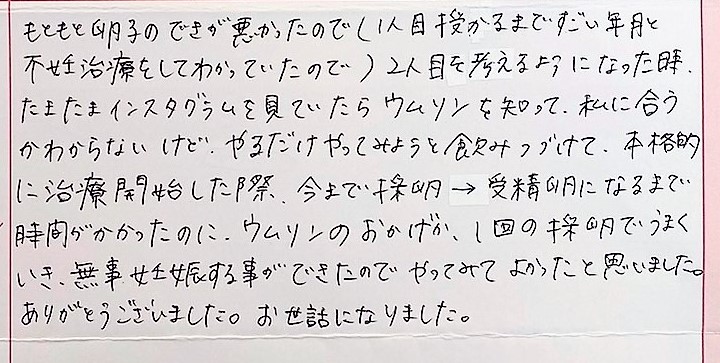 もともと卵子のできが悪かったので(1人目授かるまですごい年月と
不妊治療をしてわかっていたので)2人目を考えるようになった時、
たまたまインスタグラムを見ていたらウムリンを知って、私に合う
かわからないけど、やるだけやってみようと飲みつづけて、本格的
に治療開始した際、今まで採卵→受精卵になるまで
時間がかかったのに、ウムリンのおかげか、1回の採卵でうまく
いき、無事妊娠する事ができたのでやってみてよかったと思いました。
ありがとうございました。お世話になりました。